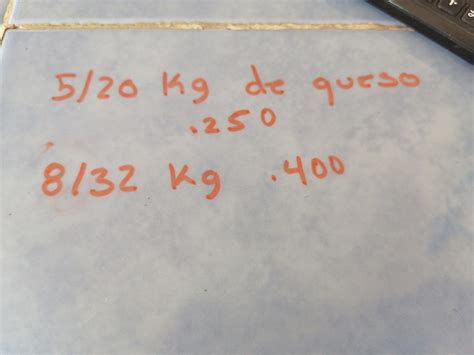 5/20 Kg de queso
.250
8/32 Kg .400